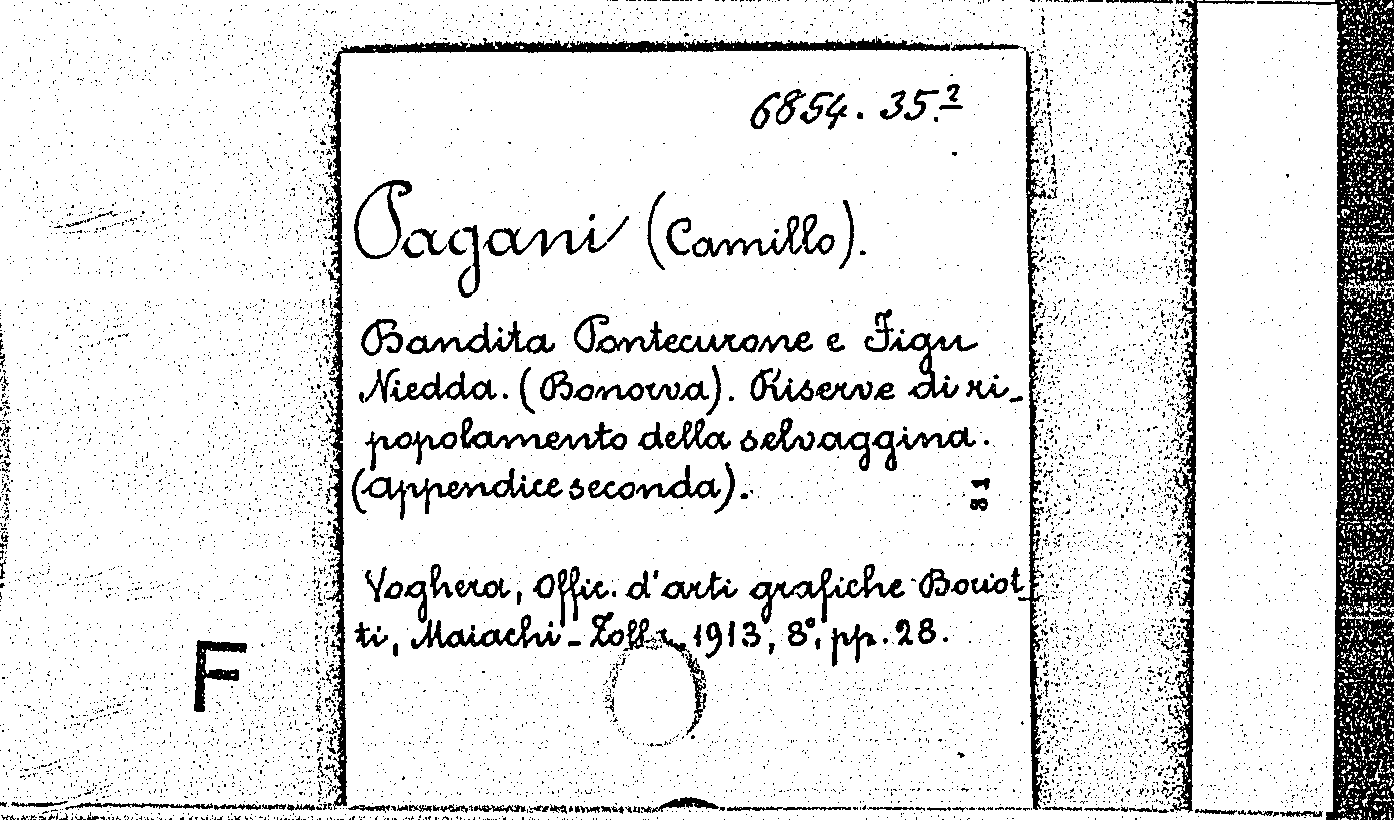 6854. 35.2
Pagani (Camillo).
Bandita Pontecurone e Figu
Niedda. (Bonorva). Riserve di ri-
popolamento della selvaggina.
(Appendice seconda).
81
Voghera, Offic. d'arti grafiche Boriot-
ti, Maiachi-Zolla, 1913, 8°, pp. 28.
F